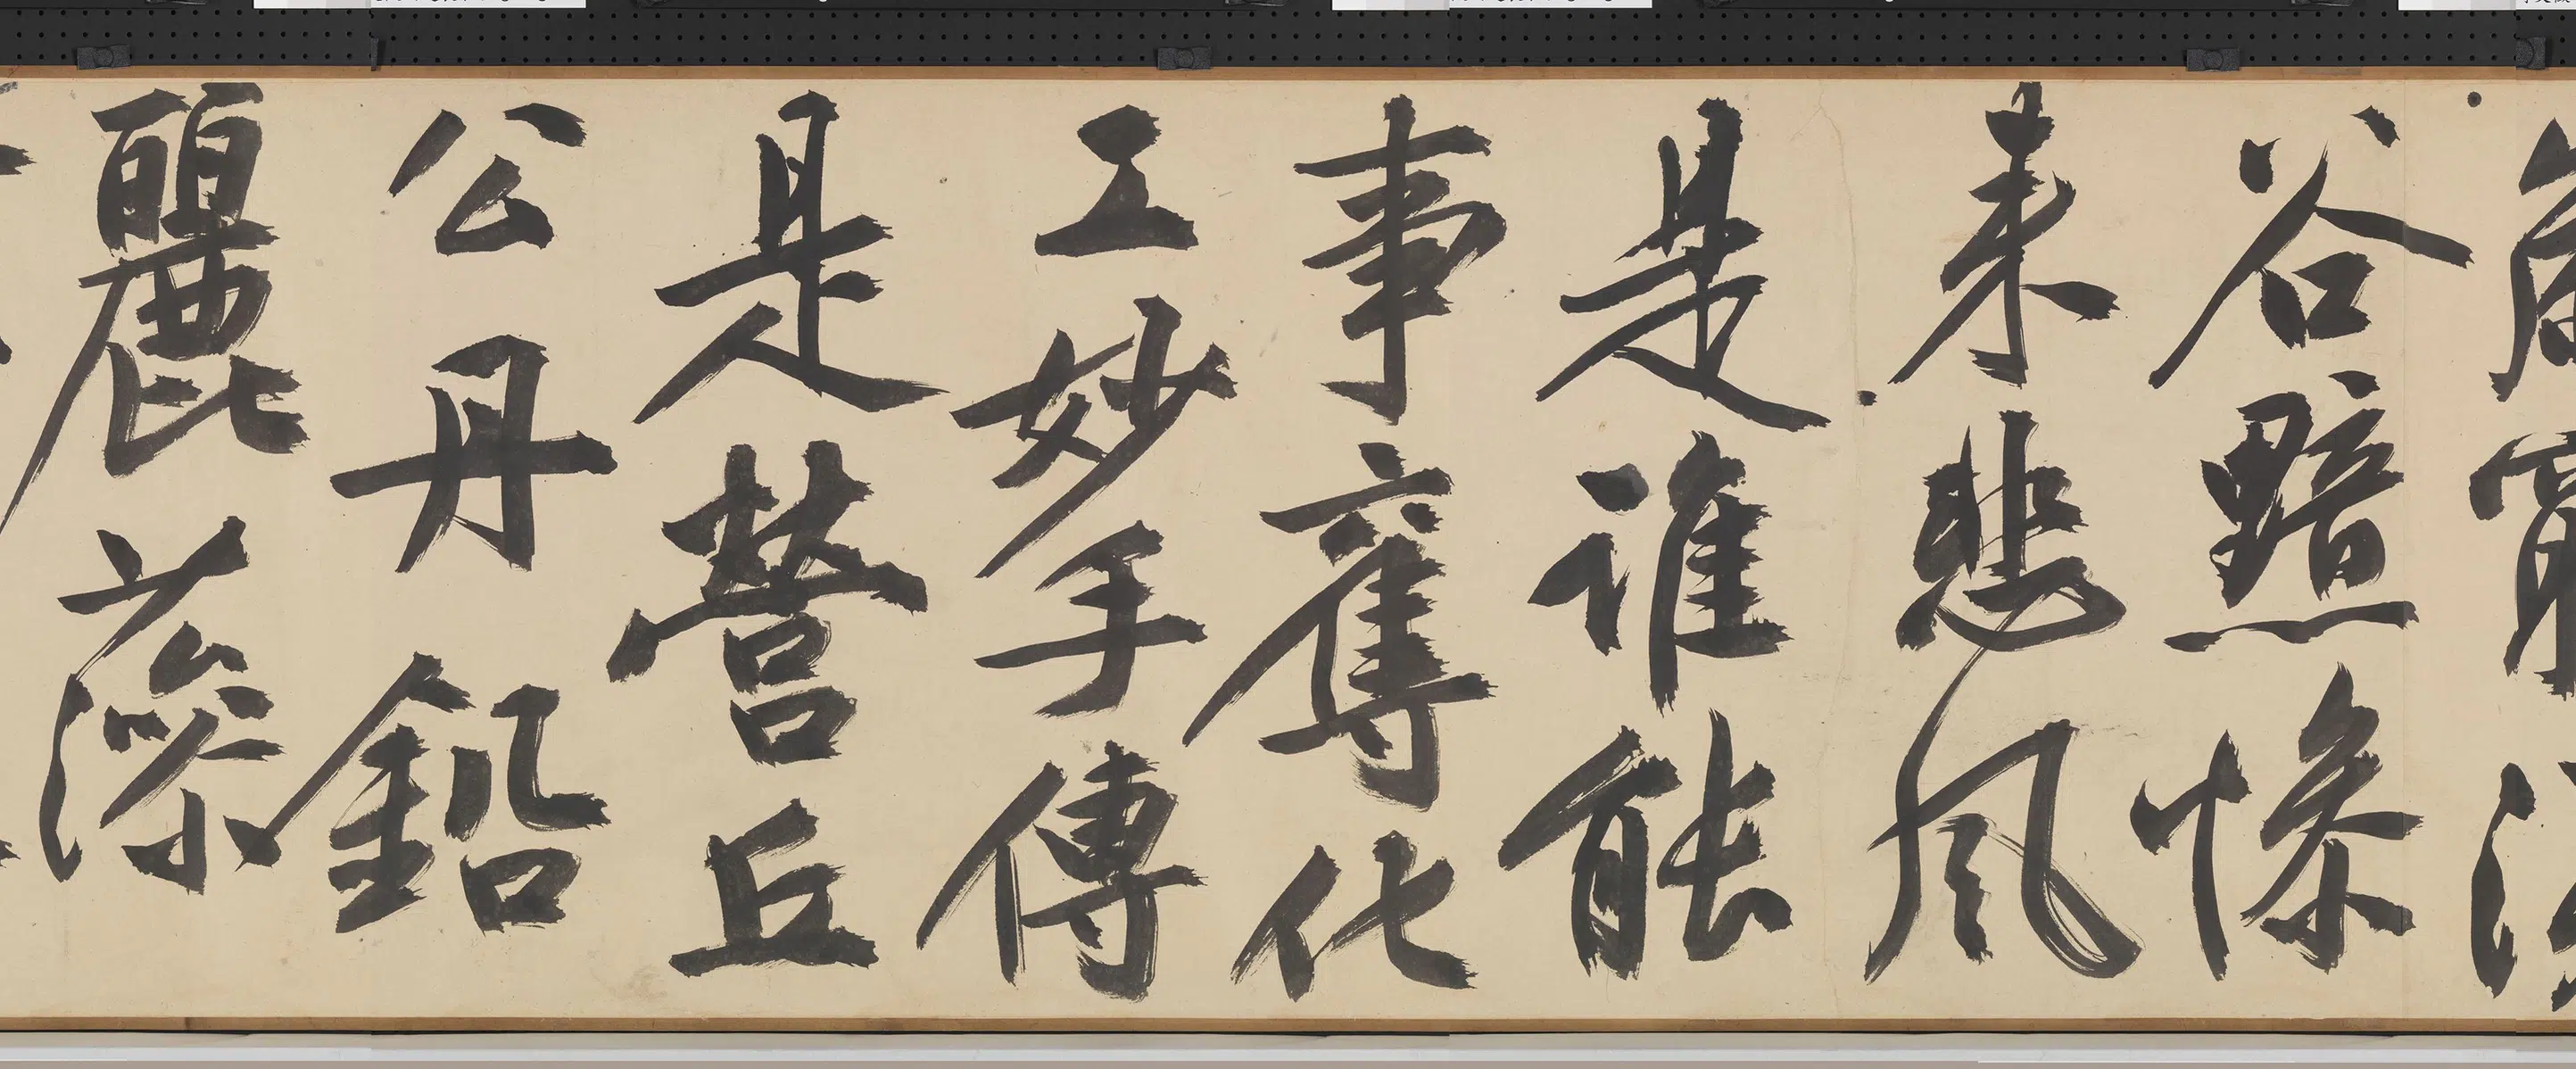 谷黯慘
来悲風
是誰能
事奪化
工妙手傳
是營丘
公丹鉛
麗藻